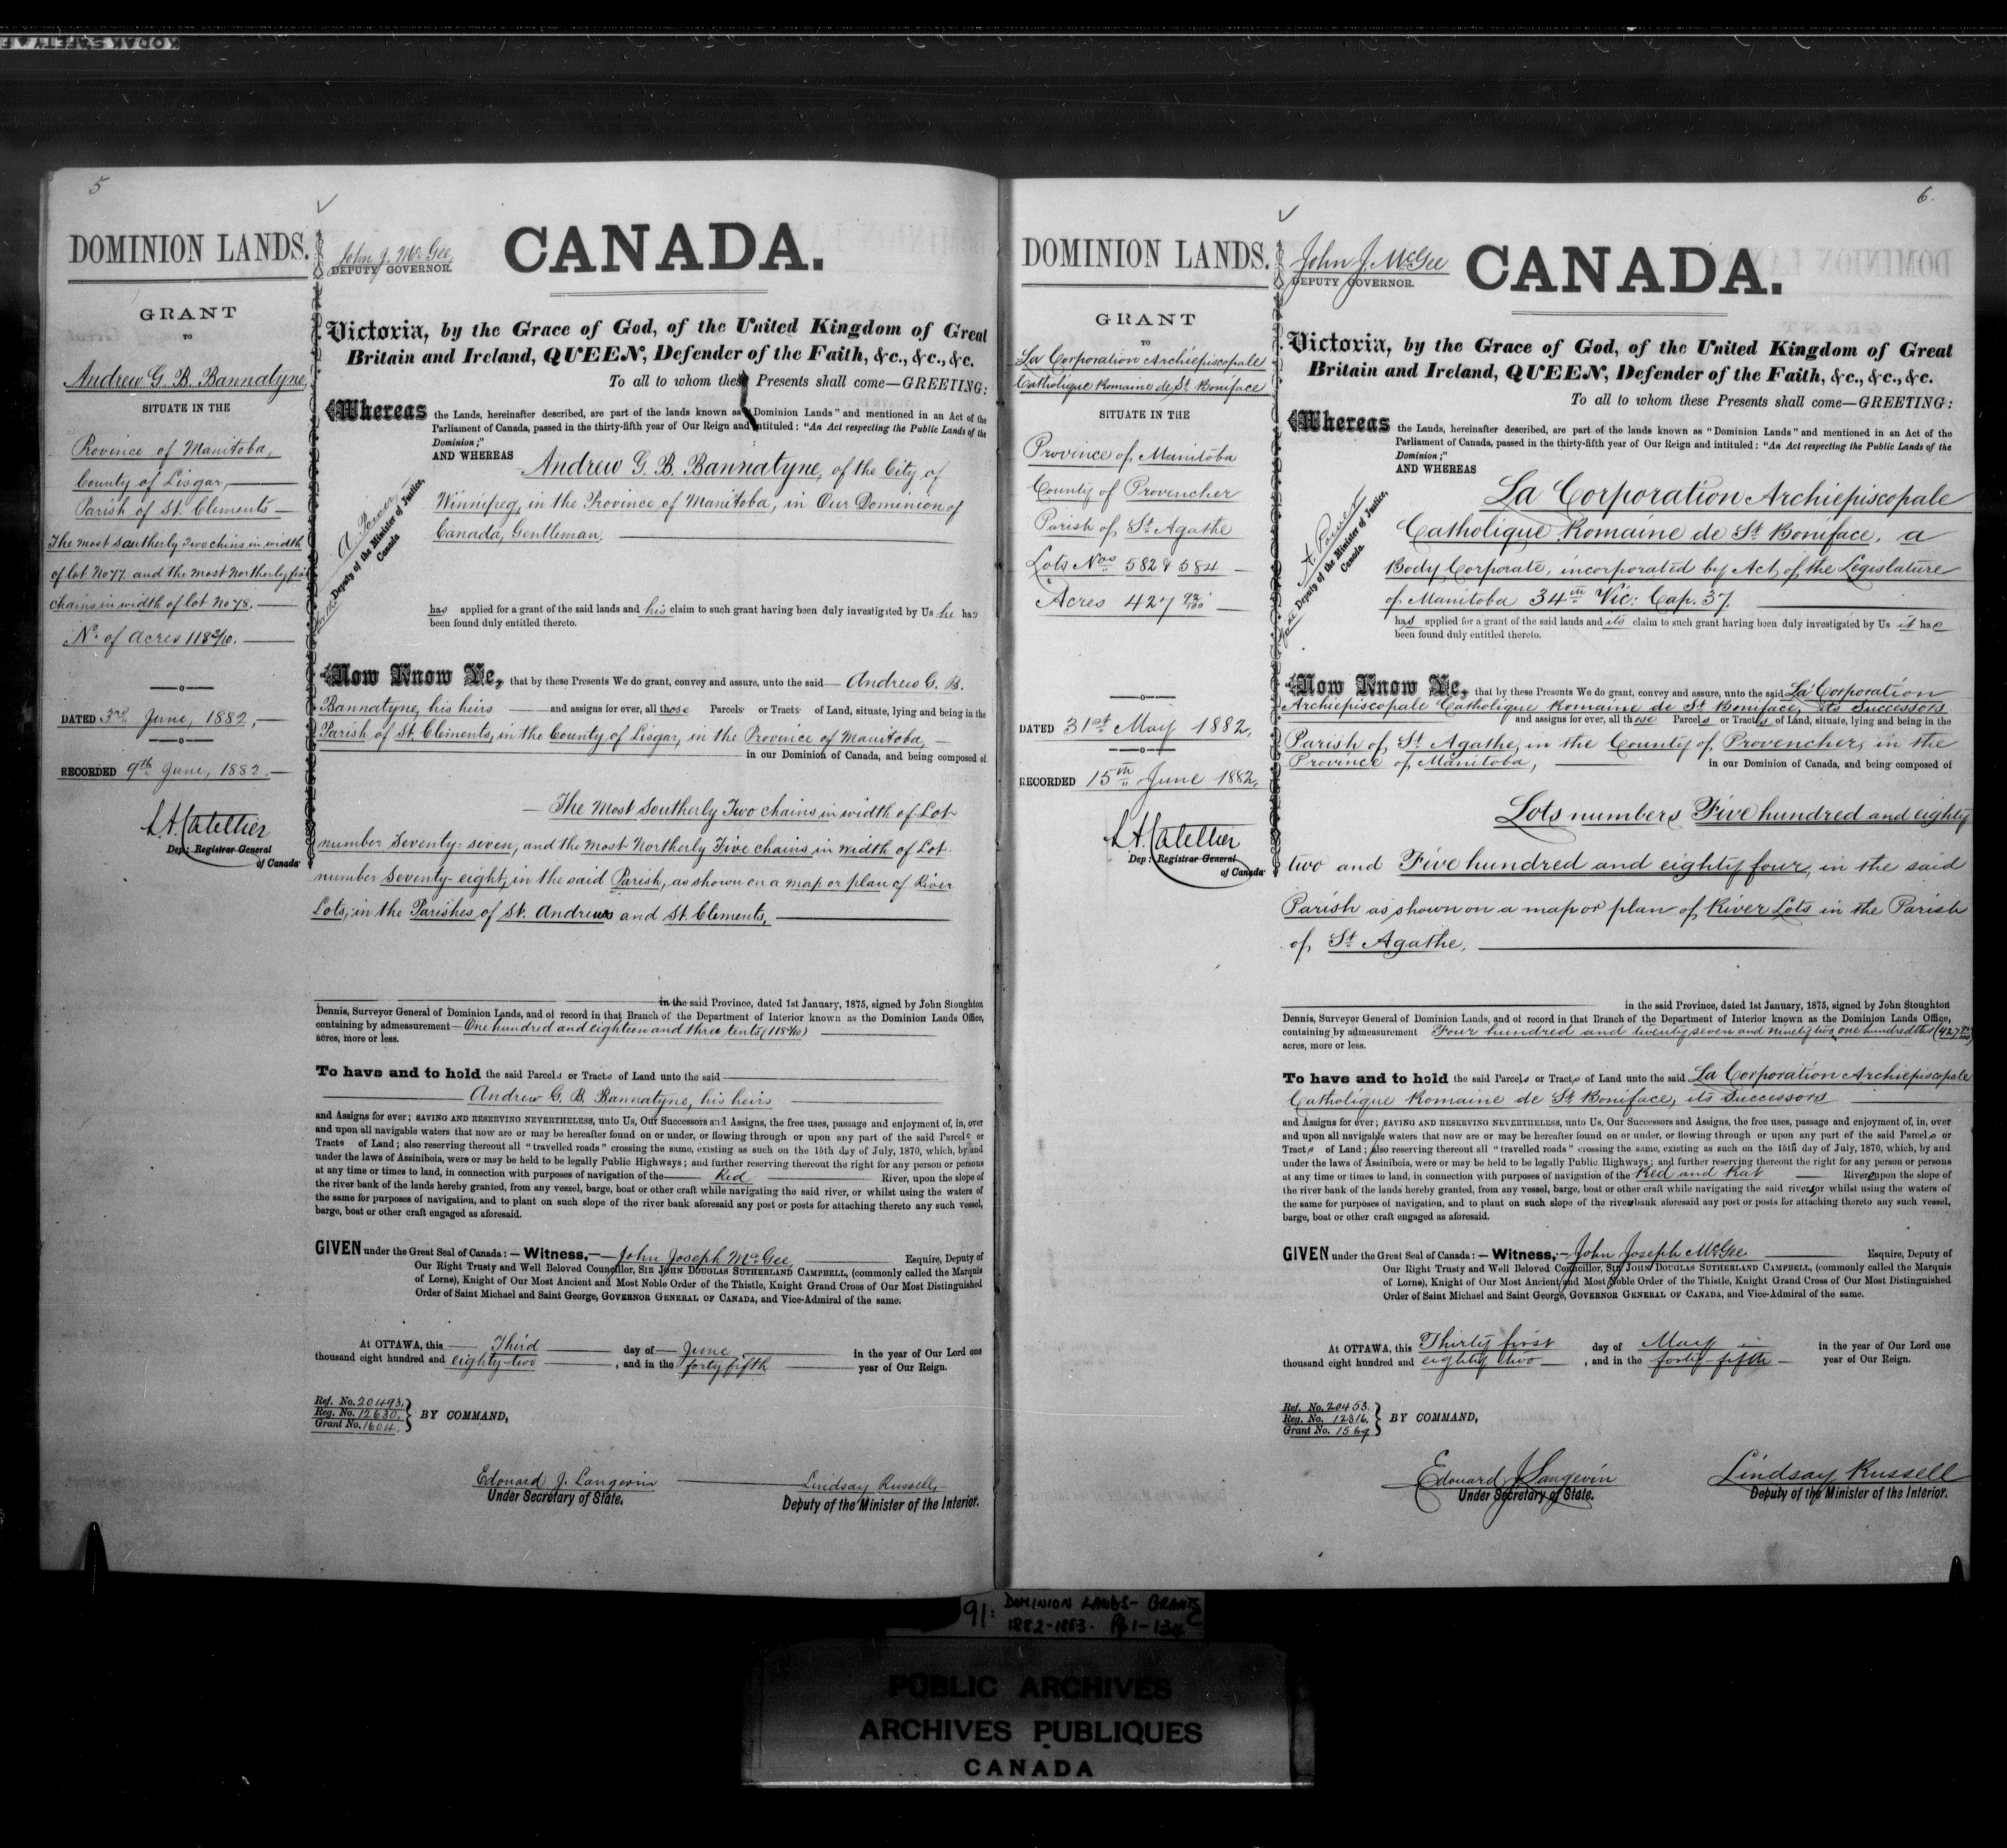 5
DOMINION LANDS.
GRANT
TO
Andrew G. B. Bannatyne,
SITUATE IN THE
Province of Manitoba,
County of Lisgar,
Parish of St. Clements
The most Southerly Two chains in width
of lot No 77. and the most Northerly five
chains in width of lot No 78.
No. of acres 118 3/10.
DATED 3rd June, 1882,
RECORDED 9th June, 1882.
L.A. Catellier
Dep: Registrar General
of Canada
John J. McGee,
DEPUTY GOVERNOR.
CANADA.
Victoria, by the Grace of God, of the United Kingdom of Great
Britain and Ireland, QUEEN, Defender of the Faith, &c., &c., &c.
To all to whom these Presents shall come—GREETING:
Whereas the Lands, hereinafter described, are part of the lands known as "Dominion Lands" and mentioned in an Act of the
Parliament of Canada, passed in the thirty-fifth year of Our Reign and intituled: "An Act respecting the Public Lands of the
Dominion;"
AND WHEREAS Andrew G. B. Bannatyne, of the City of
Winnipeg, in the Province of Manitoba, in Our Dominion of
Canada, Gentleman,
A. Power
for the Deputy of the Minister of Justice,
Canada
has applied for a grant of the said lands and his claim to such grant having been duly investigated by Us he has
been found duly entitled thereto.
Now Know Ye, that by these Presents We do grant, convey and assure, unto the said Andrew G. B.
Bannatyne, his heirs and assigns for ever, all those Parcels or Tracts of Land, situate, lying and being in the
Parish of St. Clements, in the County of Lisgar, in the Province of Manitoba,
in our Dominion of Canada, and being composed of
The Most Southerly Two chains in width of Lot
number Seventy-seven, and the most Northerly Five chains in width of Lot
number Seventy-eight, in the said Parish, as shown on a map or plan of River
Lots, in the Parishes of St. Andrews and St. Clements,
in the said Province, dated 1st January, 1875, signed by John Stoughton
Dennis, Surveyor General of Dominion Lands, and of record in that Branch of the Department of Interior known as the Dominion Lands Office,
containing by admeasurement One hundred and eighteen and three tenths (118 3/10)
acres, more or less.
To have and to hold the said Parcels or Tracts of Land unto the said
Andrew G. B. Bannatyne, his heirs
and Assigns for ever; SAVING AND RESERVING NEVERTHELESS, unto Us, Our Successors and Assigns, the free uses, passage and enjoyment of, in, over
and upon all navigable waters that now are or may be hereafter found on or under, or flowing through or upon any part of the said Parcels or
Tracts of Land; also reserving thereout all "travelled roads" crossing the same, existing as such on the 15th day of July, 1870, which, by and
under the laws of Assiniboia, were or may be held to be legally Public Highways; and further reserving thereout the right for any person or persons
at any time or times to land, in connection with purposes of navigation of the Red River, upon the slope of
the river bank of the lands hereby granted, from any vessel, barge, boat or other craft while navigating the said river, or whilst using the waters of
the same for purposes of navigation, and to plant on such slope of the river bank aforesaid any post or posts for attaching thereto any such vessel,
barge, boat or other craft engaged as aforesaid.
GIVEN under the Great Seal of Canada:—Witness,—John Joseph McGee, Esquire, Deputy of
Our Right Trusty and Well Beloved Councillor, SIR JOHN DOUGLAS SUTHERLAND CAMPBELL, (commonly called the Marquis
of Lorne), Knight of Our Most Ancient and Most Noble Order of the Thistle, Knight Grand Cross of Our Most Distinguished
Order of Saint Michael and Saint George, GOVERNOR GENERAL OF CANADA, and Vice-Admiral of the same.
At OTTAWA, this Third day of June in the year of Our Lord one
thousand eight hundred and eighty-two, and in the forty fifth year of Our Reign.
Ref. No. 20493.
Reg. No. 12630.
Grant No. 1604.
BY COMMAND,
Edouard J. Langevin
Under Secretary of State.
Lindsay Russell,
Deputy of the Minister of the Interior.
6.
DOMINION LANDS.
GRANT
TO
La Corporation Archiepiscopale
Catholique Romaine de St. Boniface
SITUATE IN THE
Province of Manitoba
County of Provencher
Parish of St. Agathe
Lots Nos 582 & 584
Acres 427 92/100
DATED 31st May 1882,
RECORDED 15th June 1882,
L.A. Catellier
Dep: Registrar General
of Canada
John J. McGee
DEPUTY GOVERNOR.
CANADA.
Victoria, by the Grace of God, of the United Kingdom of Great
Britain and Ireland, QUEEN, Defender of the Faith, &c., &c., &c.
To all to whom these Presents shall come—GREETING:
Whereas the Lands, hereinafter described, are part of the lands known as "Dominion Lands" and mentioned in an Act of the
Parliament of Canada, passed in the thirty-fifth year of Our Reign and intituled: "An Act respecting the Public Lands of the
Dominion;"
AND WHEREAS
La Corporation Archiepiscopale
Catholique Romaine de St. Boniface, a
Body Corporate, incorporated by Act of the Legislature
of Manitoba 34th Vic: Cap. 37.
A. Power
for Deputy of the Minister of Justice,
Canada.
has applied for a grant of the said lands and its claim to such grant having been duly investigated by Us it has
been found duly entitled thereto.
Now Know Ye, that by these Presents We do grant, convey and assure, unto the said La Corporation
Archiepiscopale Catholique Romaine de St. Boniface, its Successors
and assigns for ever, all those Parcels or Tracts of Land, situate, lying and being in the
Parish of St. Agathe, in the County of Provencher, in the
Province of Manitoba, in our Dominion of Canada, and being composed of
Lots numbers Five hundred and eighty
two and Five hundred and eighty four, in the said
Parish as shown on a map or plan of River Lots in the Parish
of St. Agathe,
in the said Province, dated 1st January, 1875, signed by John Stoughton
Dennis, Surveyor General of Dominion Lands, and of record in that Branch of the Department of Interior known as the Dominion Lands Office,
containing by admeasurement Four hundred and twenty seven and ninety two one hundredths (427 92/100)
acres, more or less.
To have and to hold the said Parcels or Tracts of Land unto the said La Corporation Archiepiscopale
Catholique Romaine de St. Boniface, its Successors
and Assigns for ever; SAVING AND RESERVING NEVERTHELESS, unto Us, Our Successors and Assigns, the free uses, passage and enjoyment of, in, over
and upon all navigable waters that now are or may be hereafter found on or under, or flowing through or upon any part of the said Parcels or
Tracts of Land; also reserving thereout all "travelled roads" crossing the same, existing as such on the 15th day of July, 1870, which, by and
under the laws of Assiniboia, were or may be held to be legally Public Highways; and further reserving thereout the right for any person or persons
at any time or times to land, in connection with purposes of navigation of the Red and Rat Rivers upon the slope of
the river bank of the lands hereby granted, from any vessel, barge, boat or other craft while navigating the said rivers, or whilst using the waters of
the same for purposes of navigation, and to plant on such slope of the river bank aforesaid any post or posts for attaching thereto any such vessel,
barge, boat or other craft engaged as aforesaid.
GIVEN under the Great Seal of Canada:—Witness,—John Joseph McGee Esquire, Deputy of
Our Right Trusty and Well Beloved Councillor, SIR JOHN DOUGLAS SUTHERLAND CAMPBELL, (commonly called the Marquis
of Lorne), Knight of Our Most Ancient and Most Noble Order of the Thistle, Knight Grand Cross of Our Most Distinguished
Order of Saint Michael and Saint George, GOVERNOR GENERAL OF CANADA, and Vice-Admiral of the same.
At OTTAWA, this Thirty first day of May in the year of Our Lord one
thousand eight hundred and eighty two, and in the forty-fifth year of Our Reign.
Ref. No. 20453.
Reg. No. 12316.
Grant No. 1569
BY COMMAND,
Edouard J. Langevin
Under Secretary of State.
Lindsay Russell
Deputy of the Minister of the Interior.
91: DOMINION LANDS- GRANTS
1882-1883. Pp 1-134
PUBLIC ARCHIVES
ARCHIVES PUBLIQUES
CANADA